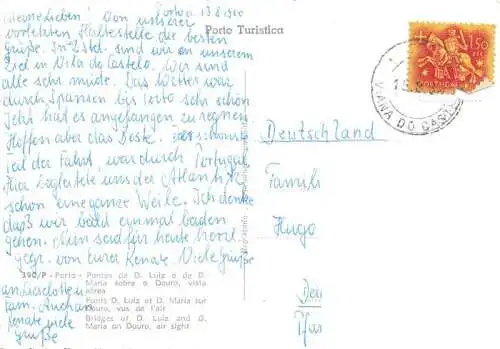 Meine Lieben! Von unserer
Porto 13.8.1960
vorletzten Haltestelle die besten
Grüße. In 2 Std. sind wir an unserem
Ziel in Vila do Castelo. Wir sind
alle sehr müde. Das Wetter war
durch Spanien bis Porto sehr schön
Jetzt hat es angefangen zu regnen
Hoffen aber das Beste. Der schönste
Teil der Fahrt, war durch Portugal
Hier begleitete uns der Atlantik
schon eine ganze Weile. Ich denke
daß wir bald einmal baden
gehen. Nun seid für heute herzl.
gegr. von Eurer Renate. Viele Grüße
an Lieselotte u.
Fam.
Renate viele
Grüße
Porto Turística
390/P - Porto - Pontes de D. Luiz e de D.
Maria sobre o Douro, vista
aérea
Ponts D. Luiz et D. Maria sur
Douro, vus de l'air
Bridges of D. Luiz and D.
Maria on Douro, air sight
Deutschland
Familie
Hugo
1$50
PORTUGAL
VIANA DO CASTELO